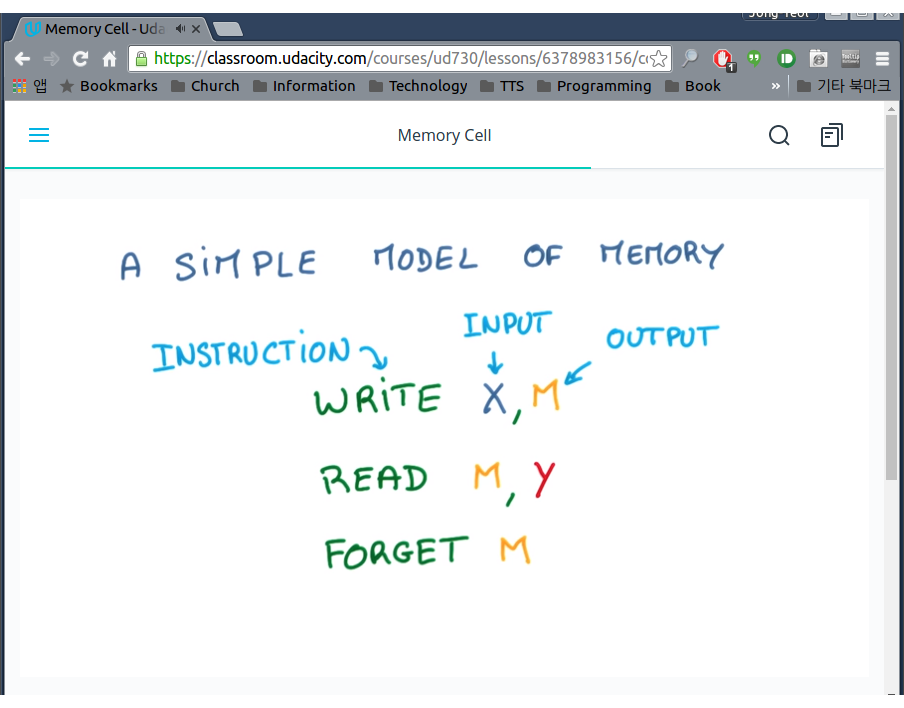 Memory Cell - Uda
https://classroom.udacity.com/courses/ud730/lessons/6378983156/c
앱 Bookmarks Church Information Technology TTS Programming Book » 기타 북마크
Memory Cell
A SIMPLE MODEL OF MEMORY
INPUT
OUTPUT
INSTRUCTION
WRITE X, M
READ M, Y
FORGET M